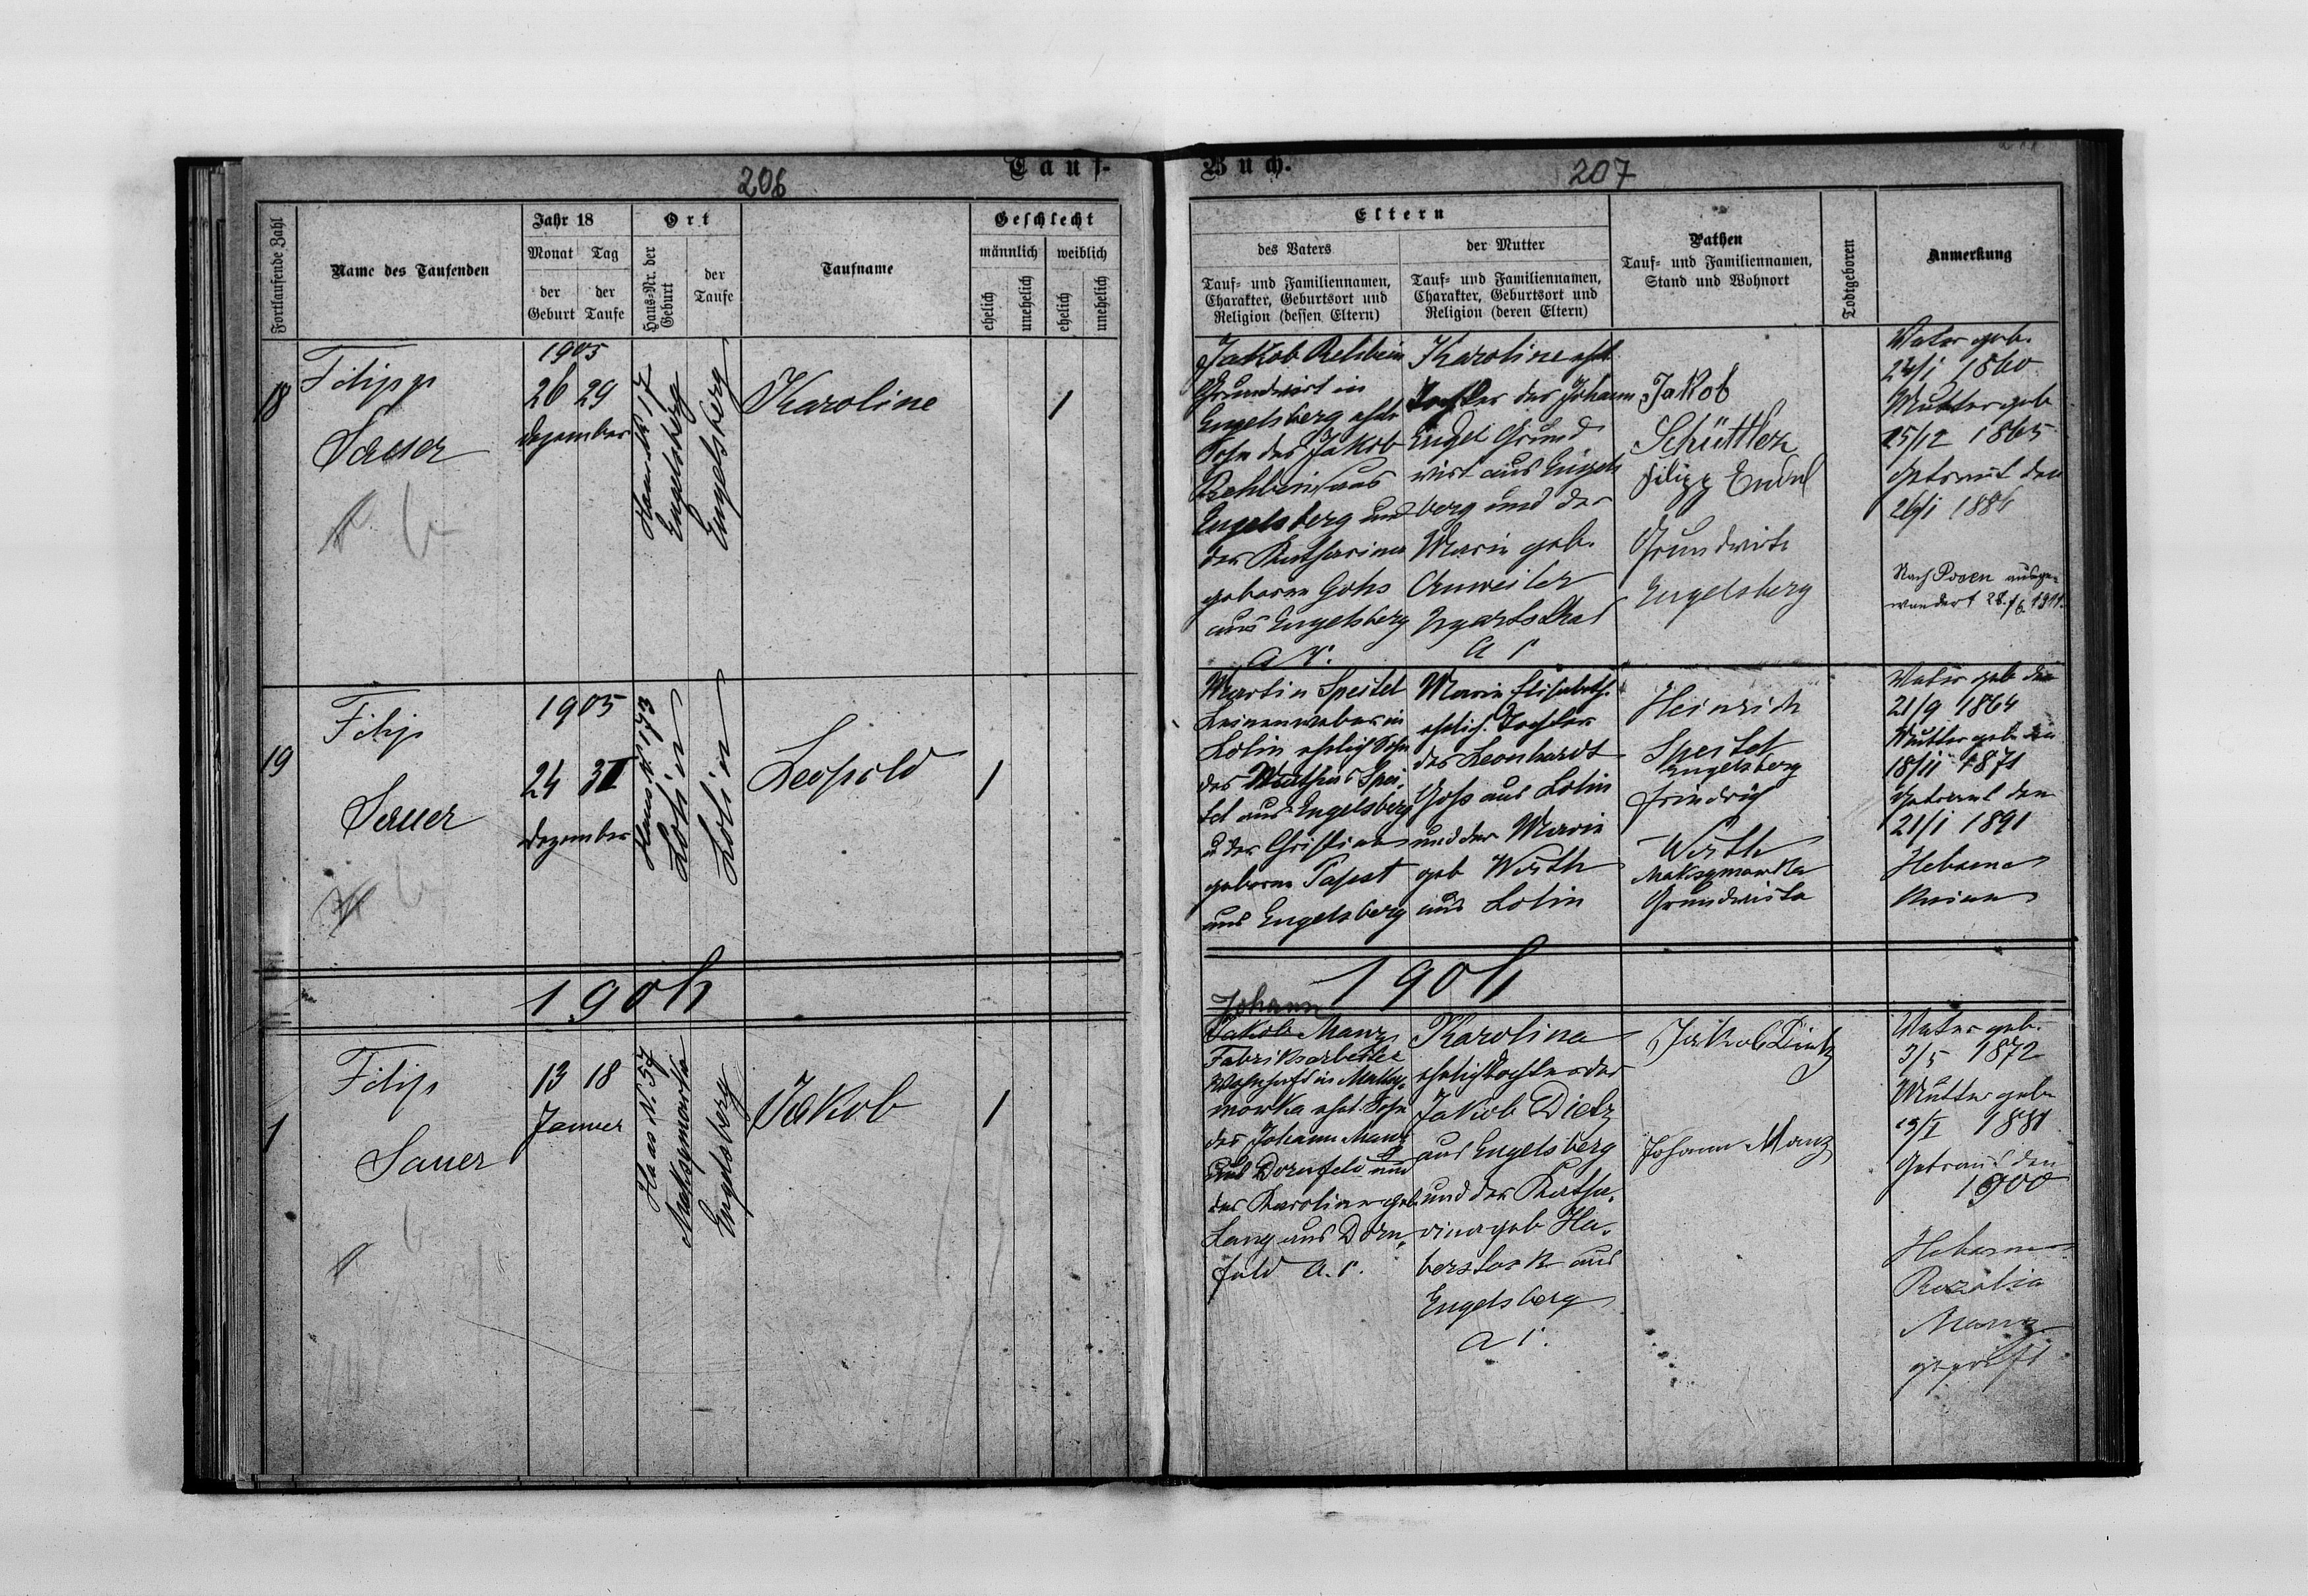 206
Tauf-
Fortlaufende Zahl
Name des Taufenden
Jahr 18
Monat Tag
der Geburt
der Taufe
Ort
Haus-Nr. der Geburt
der Taufe
Taufname
Geschlecht
männlich weiblich
ehelich
unehelich
ehelich
unehelich
18
Filipp
Sauer
1905
26 29
Dezember
Haus N 17
Engelsberg
Engelsberg
Karoline
1
19
Filip
Sauer
1905
24
Dezember
Haus N 173
Lolin
Lolin
Leopold
1
1906
1
Filip
Sauer
13 18
Januer
N. 57
Maksymowka
Engelsberg
Jakob
1
Buch.
207
Eltern
des Vaters
Tauf- und Familiennamen,
Charakter, Geburtsort und
Religion (dessen Eltern)
der Mutter
Tauf- und Familiennamen,
Charakter, Geburtsort und
Religion (deren Eltern)
Pathen
Tauf- und Familiennamen,
Stand und Wohnort
Todtgeboren
Anmerkung
Jakob Rehbein
Grundwirt in
Engelsberg ehl.
Sohn des Jakob
Rehbein aus
Engelsberg und
der Katharina
geborne Gohs
aus Engelsberg
Karoline ehl
Tochter des Johann
Engel Grund
wirt aus Engels
berg und der
Marie geb.
Anweiler
Ugartsthal
Jakob
Schüttler
Filipp
Grundwirte
Engelsberg
Vater geb.
24/1 1860
Mutter geb
25/12 1865
Getraut den
26/1 1886
Nach Posen ausge-
wandert 28./6. 1911.
Martin Speitel
Leinenweber in
Lolin ehelich Sohn
des Mathias Spei-
tel aus Engelsberg
u der Christine
geborne Papst
aus Engelsberg
Marie Elisabeth
ehelich. Tochter
des Leonhardt
Gohs aus Lolin
und der Marie
geb Wirth
aus Lolin
Heinrich
Speitel
Engelsberg
Friedrich
Wirth
Maksymowka
Grundwirte
Vater geb den
21/9 1864
Mutter geb den
18/11 1871
Getraut den
21/1 1891
Hebame
1906
Johann
Jakob Manz
Fabriksarbeiter
Wohnhaft in Maksy-
mowka ehel. Sohn
des Johann Manz
aus Dornfeld und
der Karoline geb
Lang aus Dorn-
feld A. C.
Karolina
ehelich Tochter des
Jakob Dietz
aus Engelsberg
und der Katha-
rina geb Ha-
berstock aus
Engelsberg
Jakob Dietz
Johann Manz
Vater geb.
3/5 1872
Mutter geb
1881
Getraut den
1900
Hebame
Rozalia
Manz
geprüft